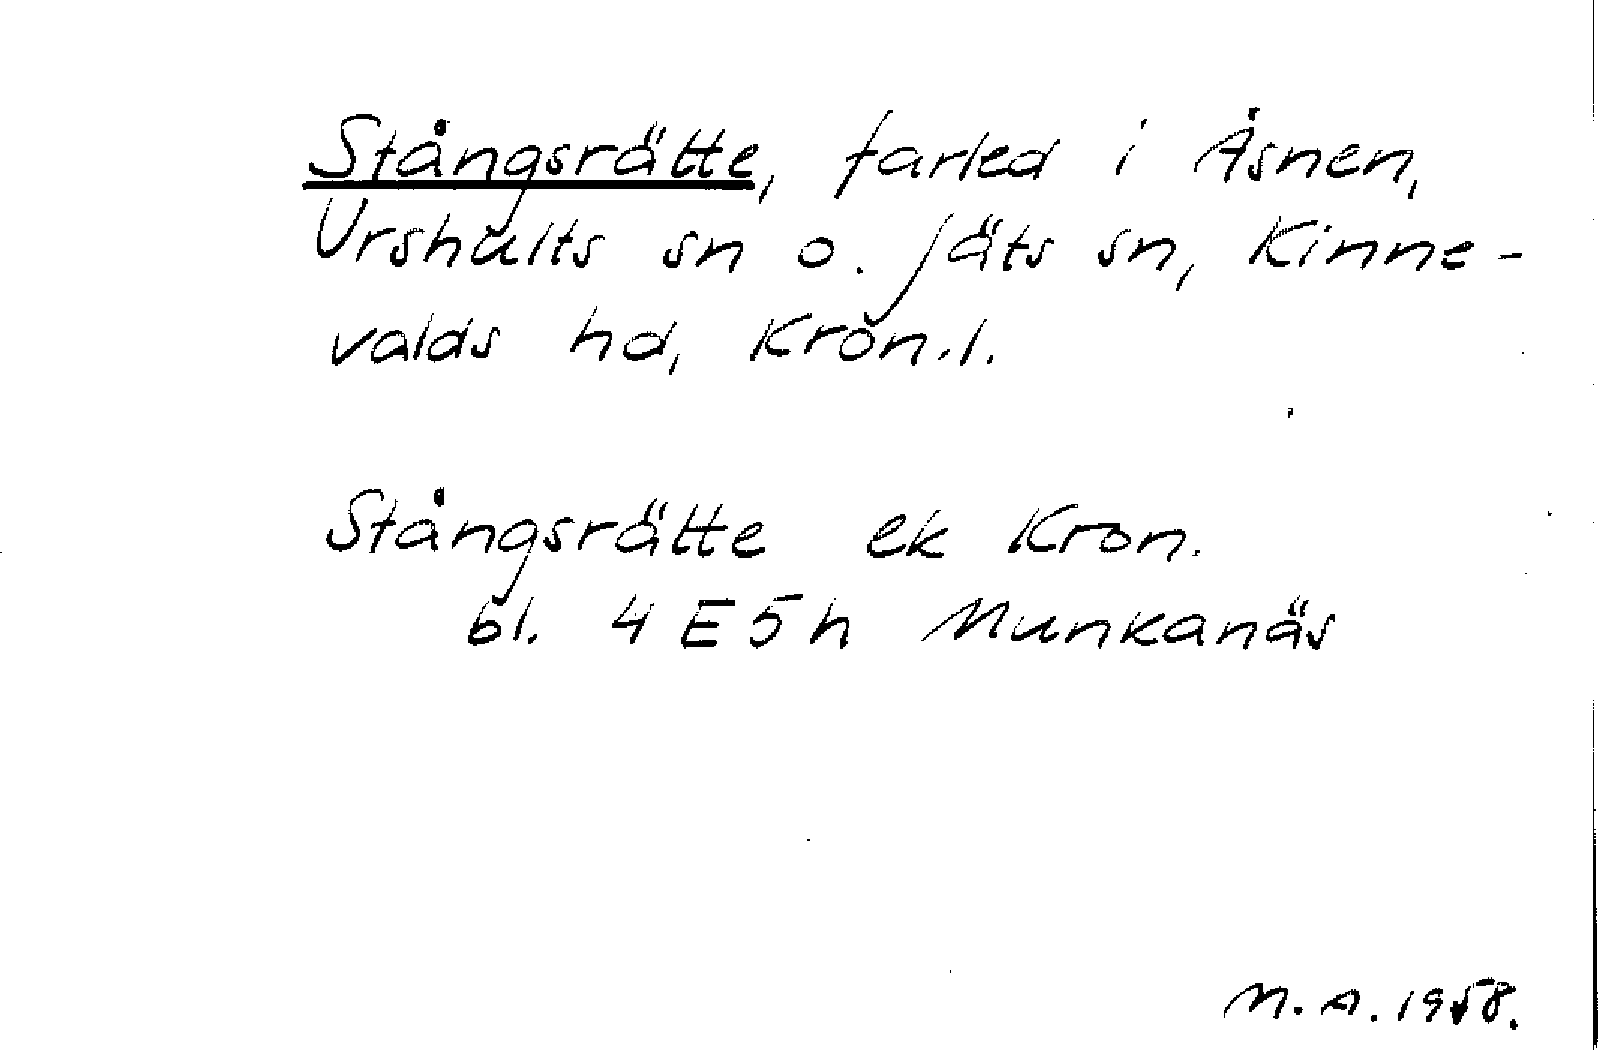 Stångsrätte, farled i Åsnen,
Urshults sn o. Jäts sn, Kinne-
valds hd, Kron.l.
Stångsrätte ek Kron.
bl. 4 E 5 h Munkanäs
M.A. 1958.